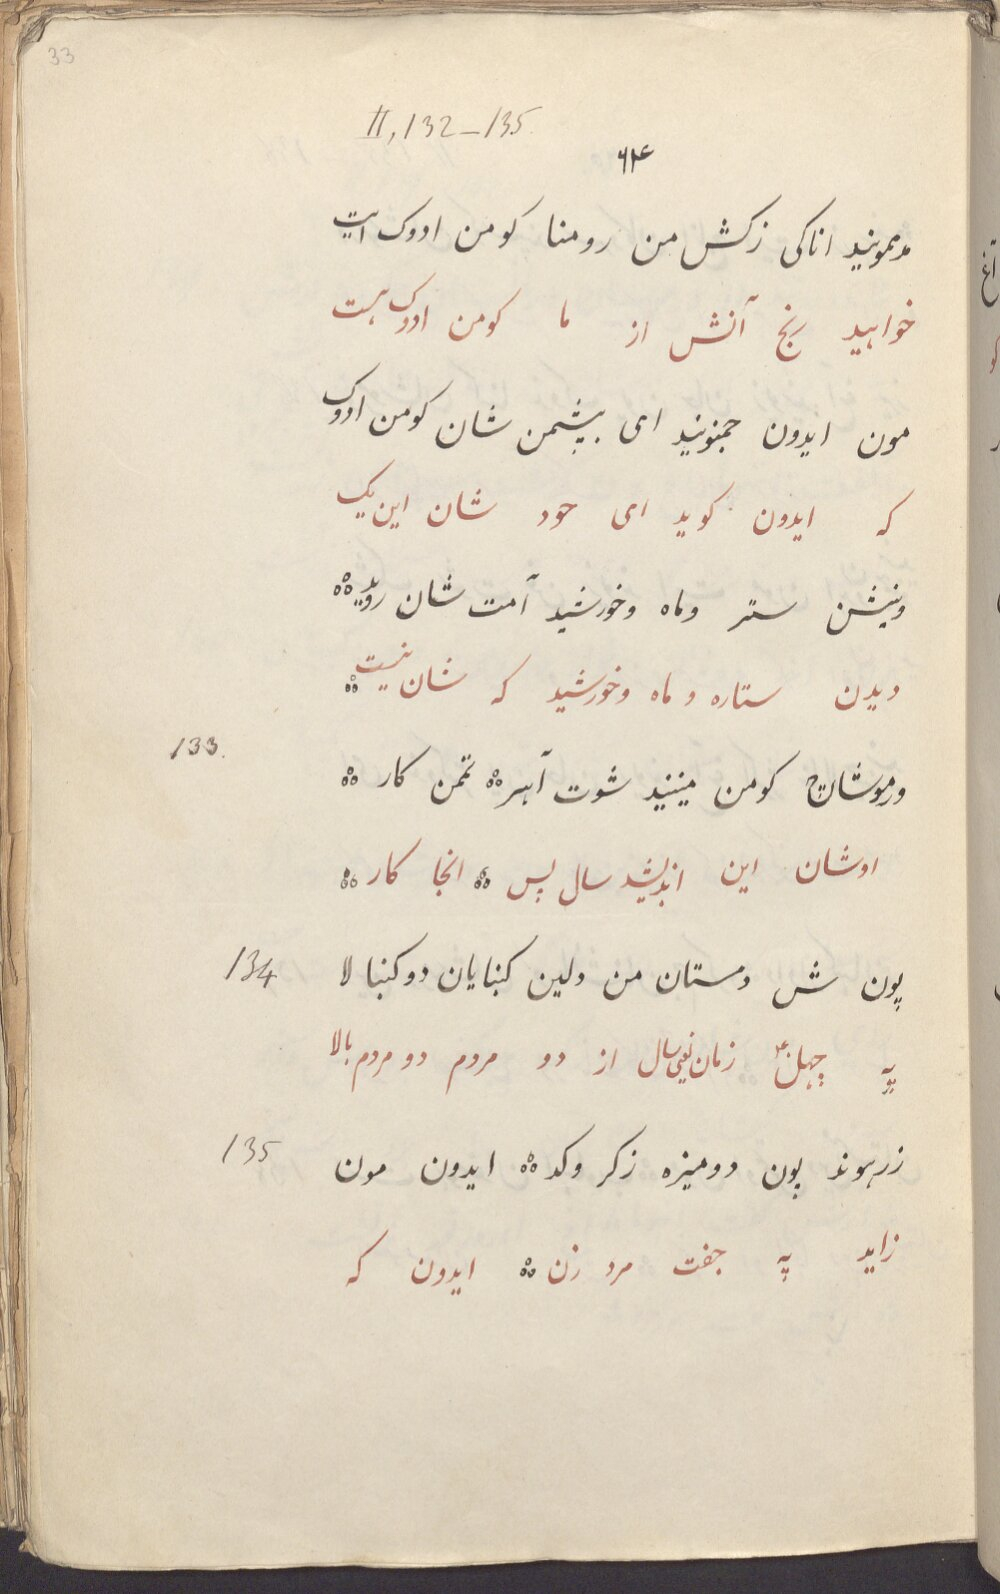 33
II, 132-135
۶۴
مدمونید اناکی زکش من رومنا کومن ادوک ایت
خواهید رنج آنش از ما کومن ادوک هست
مون ایدون جمنونید ای بپشمن شان کومن ادوک
که ایدون کوید ای خود شان این یک
وینشن ستر وماه وخورشید آمت شان
دیدن ستاره و ماه وخورشید که شان نیست
133.
کومن مینید شوت آهر تمن کار
اوشان این اندیشد سال پس انجا کار
134
پون ش دستان من دلین کبنایان دو کبنا لا
په چهل زمان یعنی سال از دو مردم دو مردم بالا
135
زرهوند پون دو میزه زکر وکد ایدون مون
زاید په جفت مرد زن ایدون که